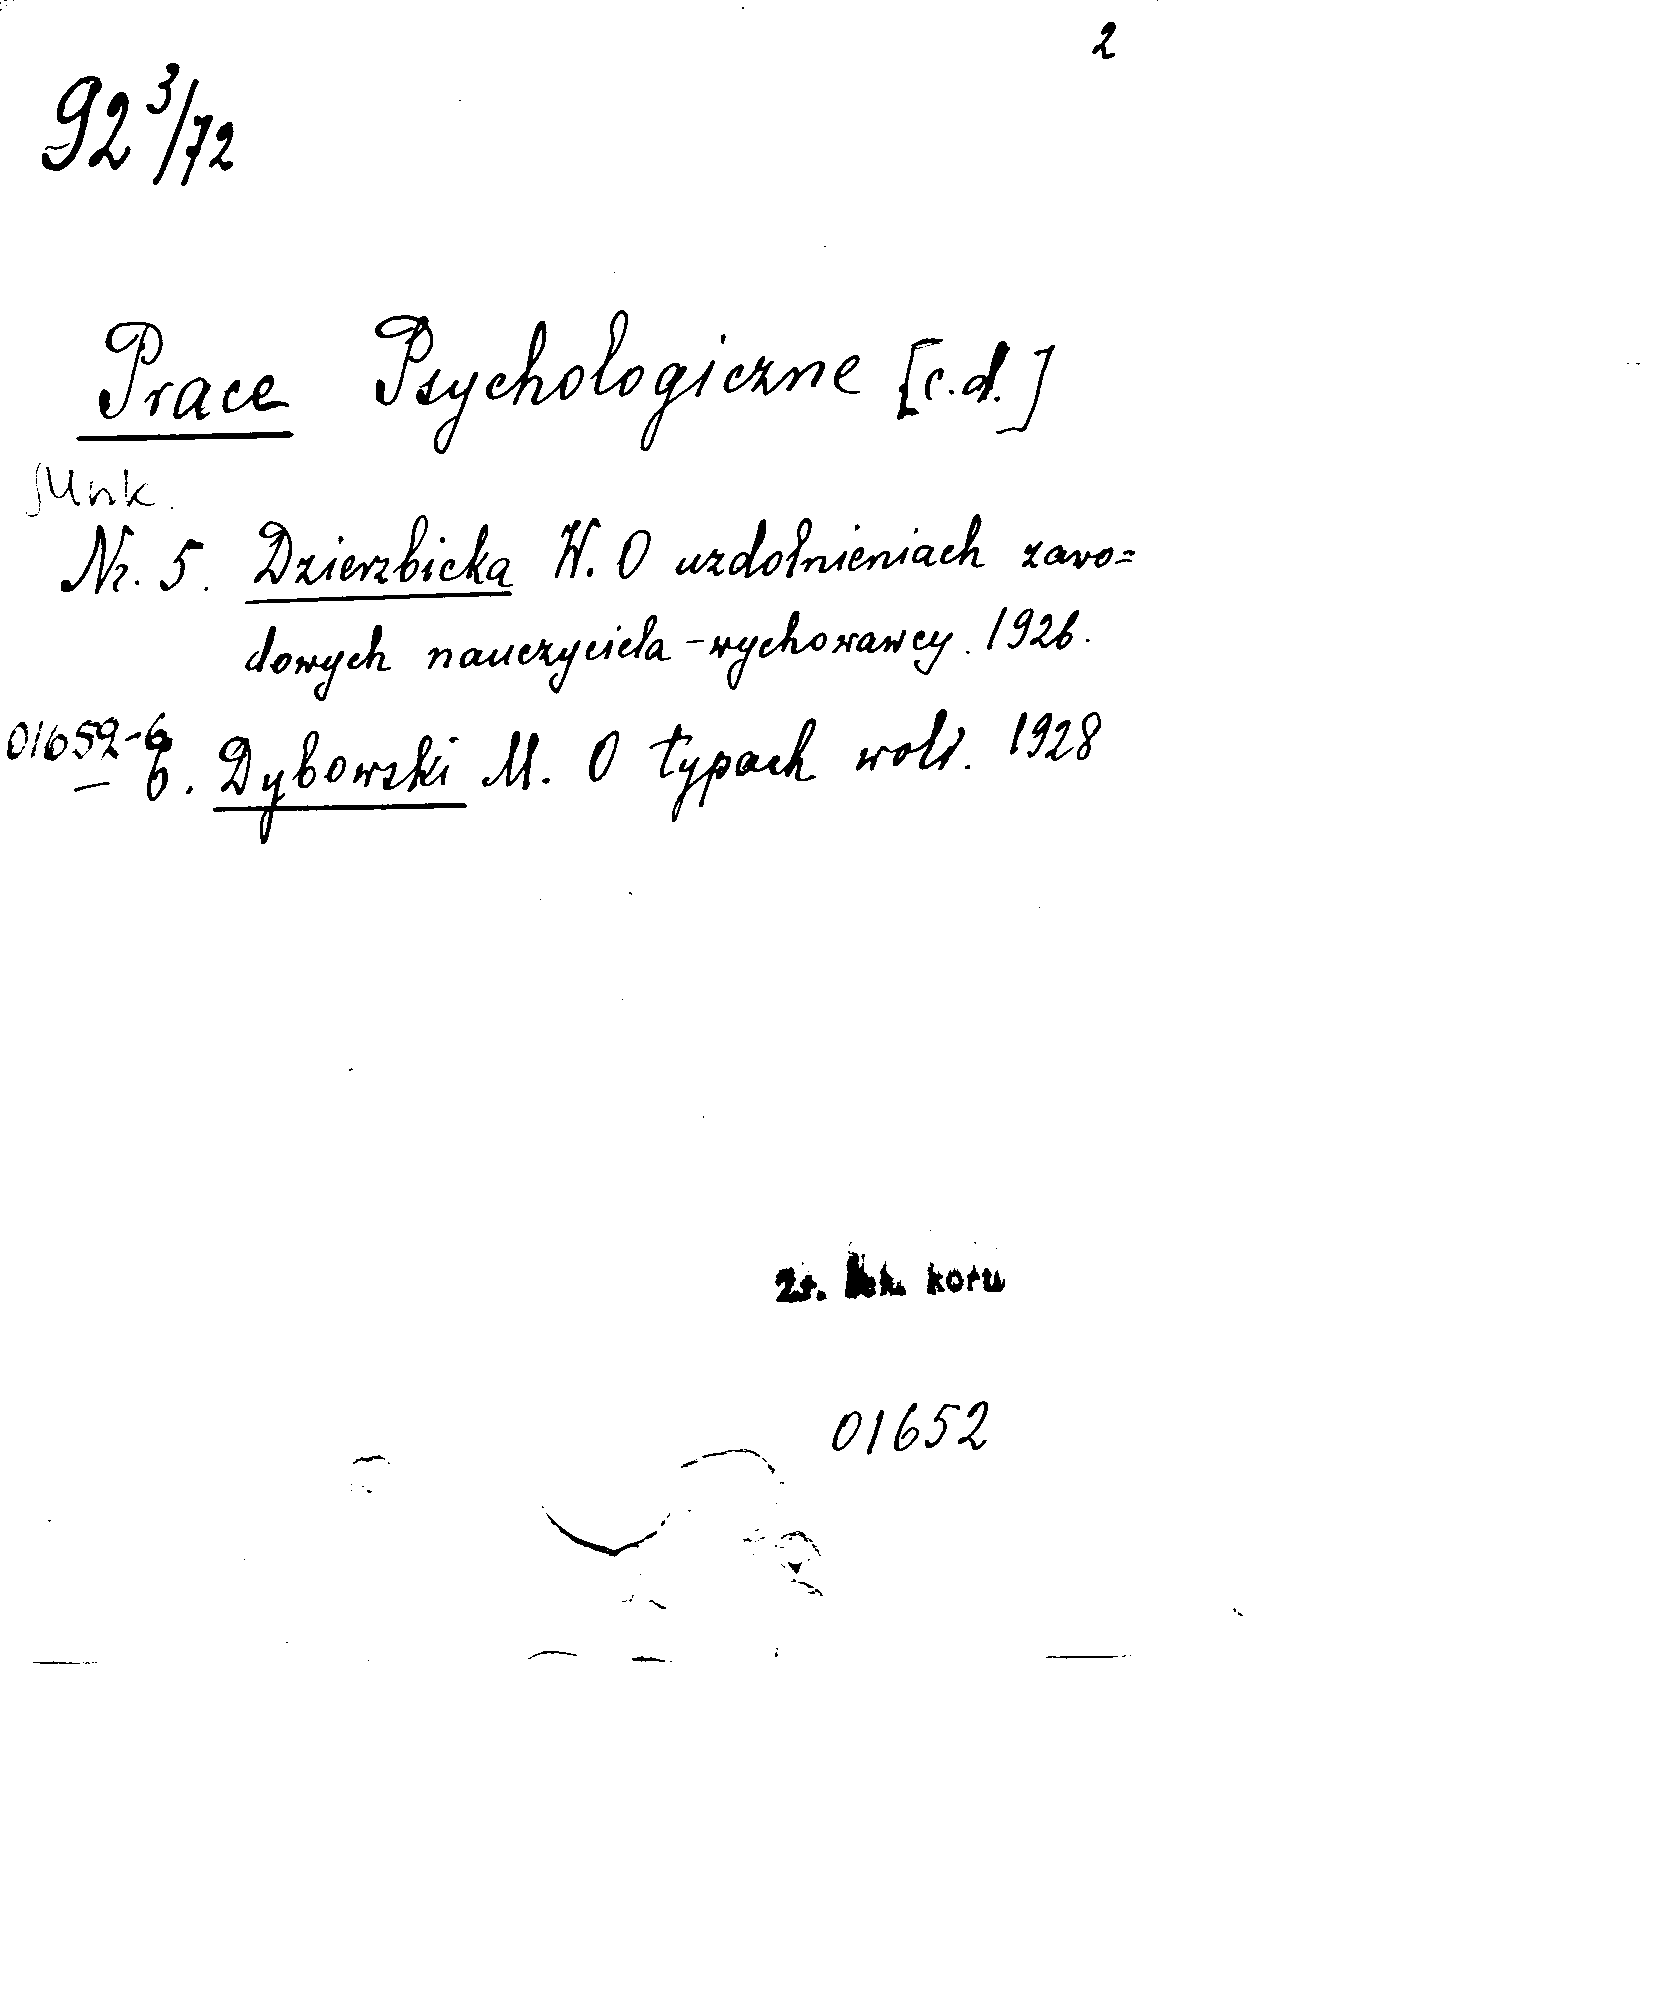 2
92 3/72
Prace Psychologiczne [c.d.]
Nr. 5. Dzierzbicka W. O uzdolnieniach zawo=
dowych nauczyciela - wychowawcy. 1926.
01652-6
6. Dybowski M. O typach woli. 1928
01652